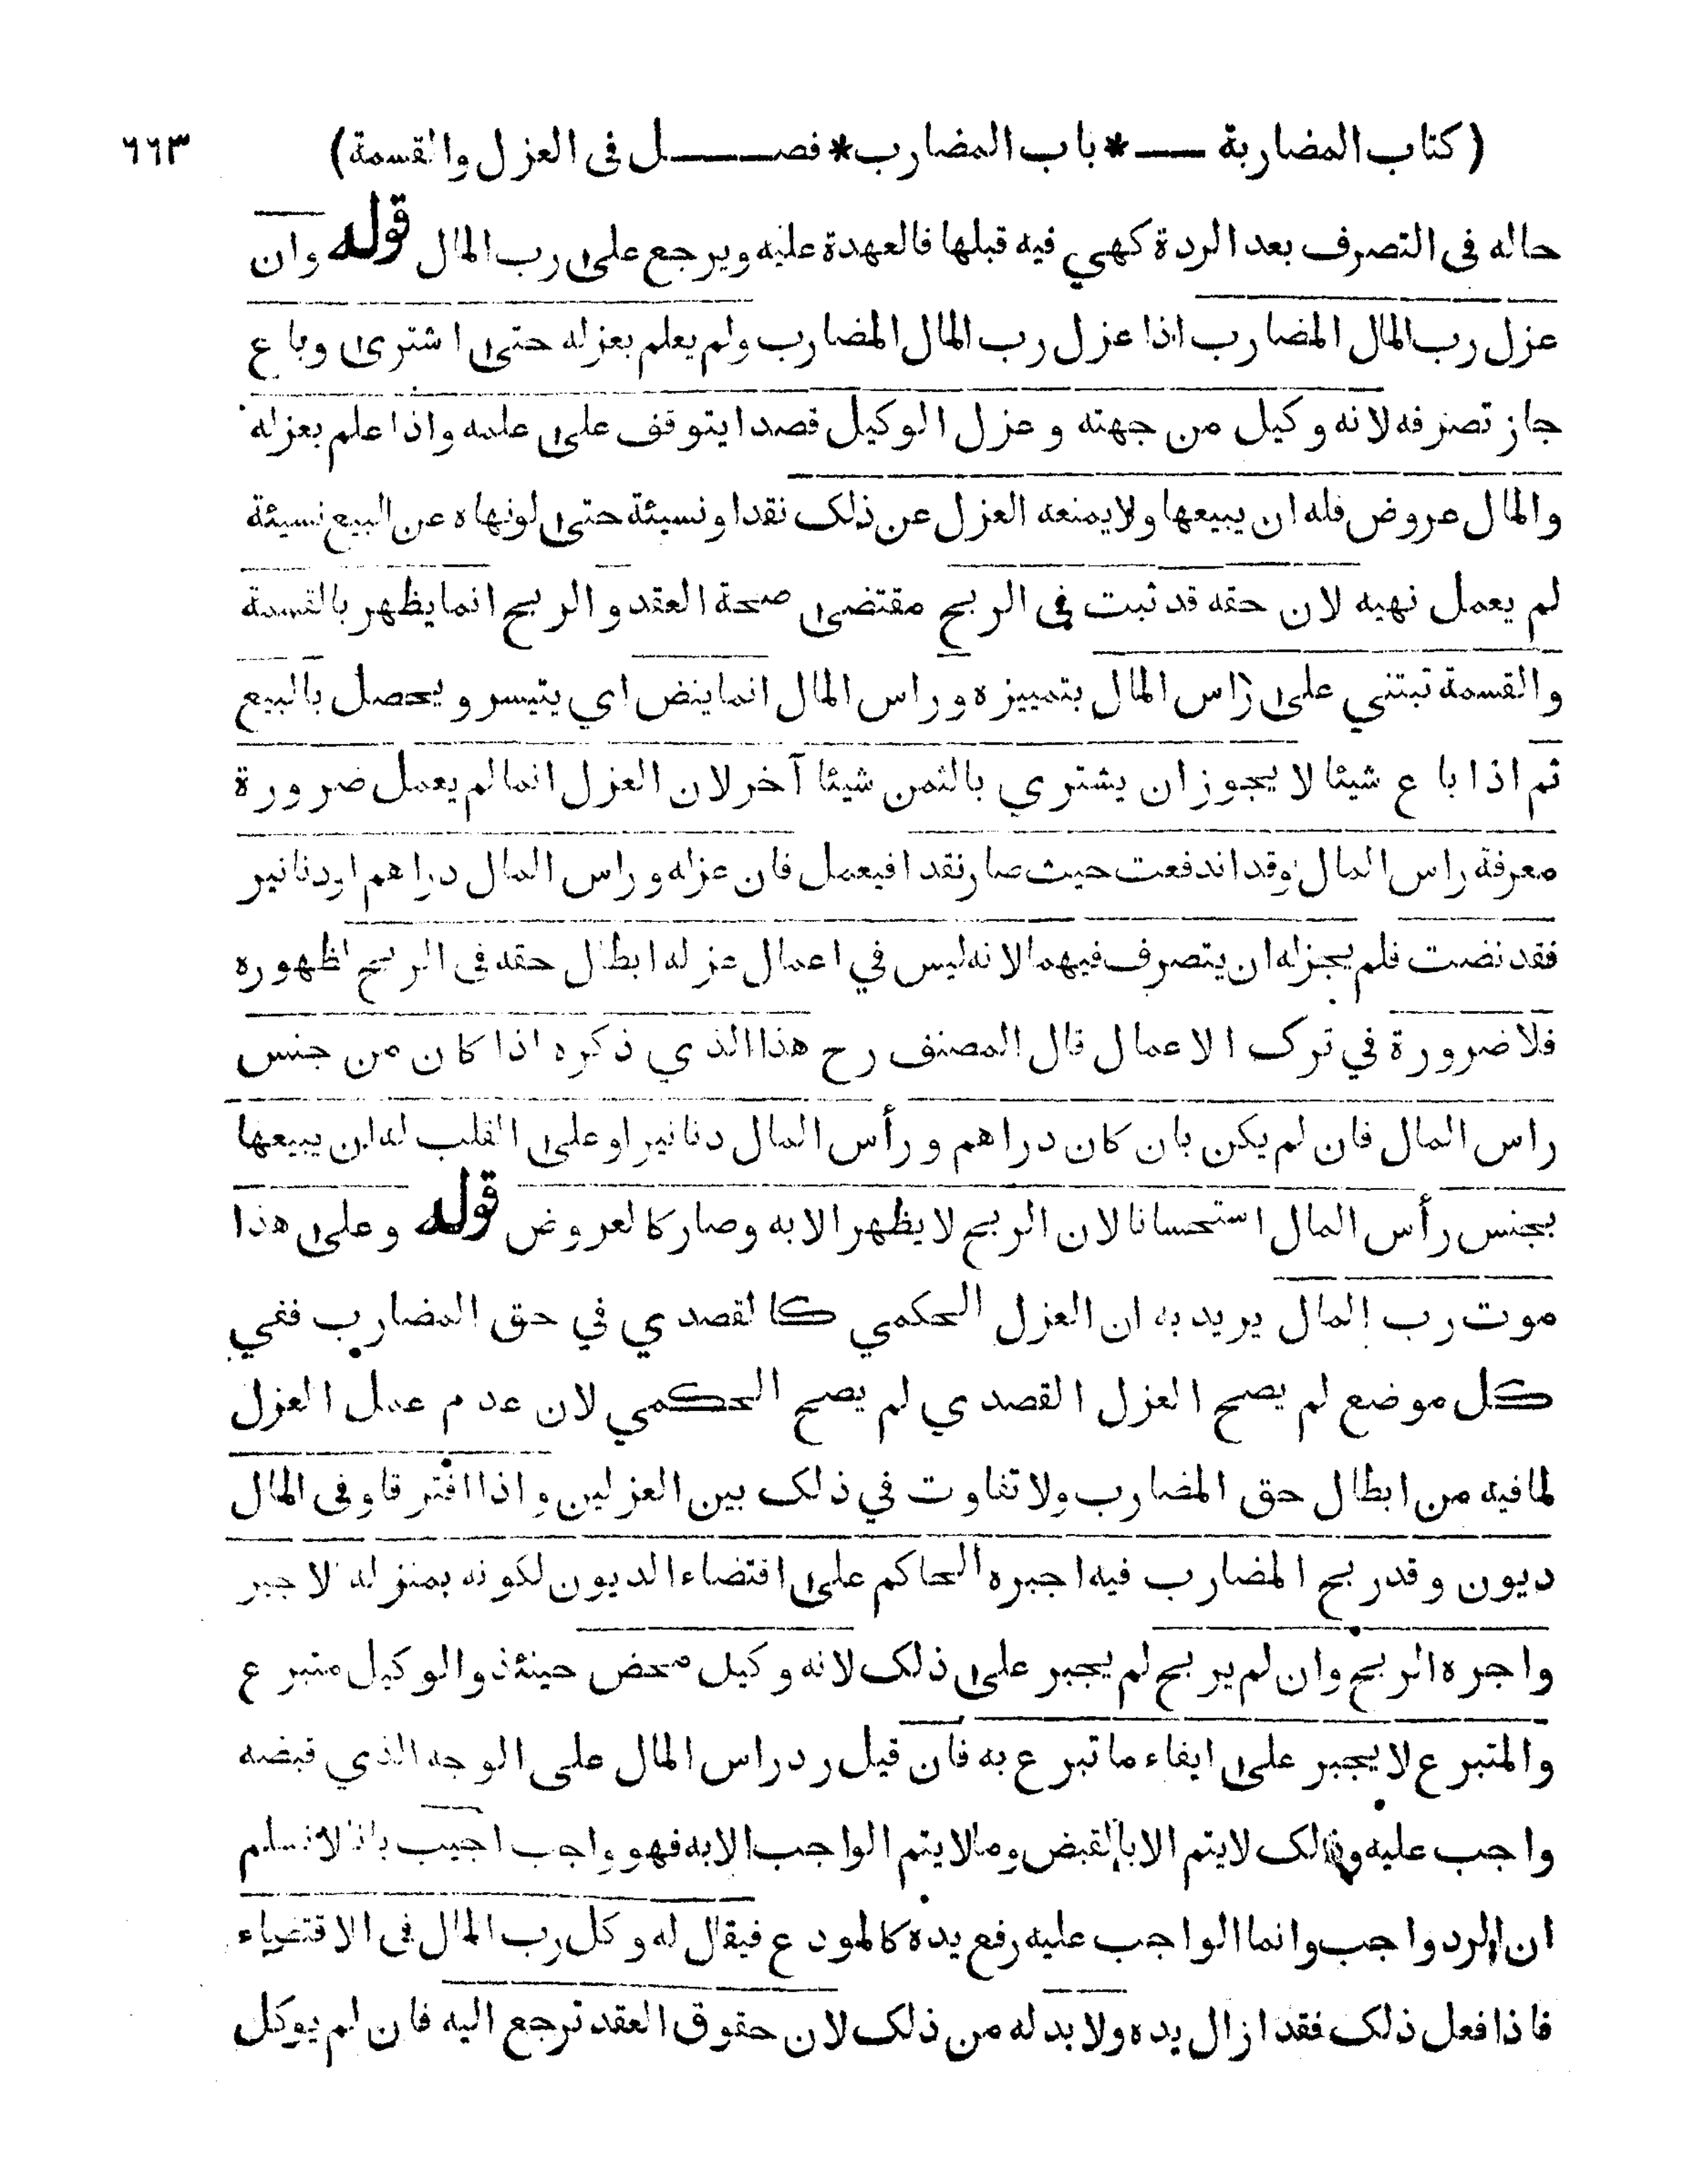 (كتاب المضاربة ــــ * باب المضارب * فصـــــل فى العزل والقسمة) ٦٦٣
حاله فى التصرف بعد الردة كهي فيه قبلها فالعهدة عليه ويرجع على رب المال قوله وان
عزل رب المال المضارب اذا عزل رب المال المضارب ولم يعلم بعزله حتى اشترى وباع
جاز تصرفه لانه وكيل من جهته وعزل الوكيل قصدا يتوقف على علمه واذا علم بعزله
والمال عروض فله ان يبيعها ولا يمنعه العزل عن ذلك نقدا ونسيئة حتى لونهاه عن البيع نسيئة
لم يعمل نهيه لان حقه قد ثبت فى الربح مقتضى صحة العقد والربح انما يظهر بالقسمة
والقسمة تبتني على راس المال بتمييزه وراس المال انما ينض اي يتيسر ويحصل بالبيع
ثم اذا باع شيئا لا يجوز ان يشتري بالثمن شيئا آخر لان العزل انما لم يعمل ضرورة
معرفة راس المال وقد اندفعت حيث صار نقدا فيعمل فان عزله وراس المال دراهم او دنانير
فقد نضت فلم يجزله ان يتصرف فيهما لانه ليس في اعمال عزله ابطال حقه فى الربح لظهوره
فلا ضرورة في ترك الاعمال قال المصنف رح هذا الذي ذكره اذا كان من جنس
راس المال فان لم يكن بان كان دراهم ورأس المال دنانير او على القلب له ان يبيعها
بجنس رأس المال استحسانا لان الربح لا يظهر الا به وصار كالعروض قوله وعلى هذا
موت رب المال يريد به ان العزل الحكمي كالقصدي في حق المضارب ففي
كل موضع لم يصح العزل القصدي لم يصح الحكمي لان عدم عمل العزل
لما فيه من ابطال حق المضارب ولا تفاوت في ذلك بين العزلين واذا افترقا وفى المال
ديون وقد ربح المضارب فيه اجبره الحاكم على اقتضاء الديون لكونه بمنزله لاجير
واجره الربح وان لم يربح لم يجبر على ذلك لانه وكيل محض حينئذ والوكيل متبرع
والمتبرع لا يجبر على ايفاء ما تبرع به فان قيل رد راس المال على الوجه الذي قبضه
واجب عليه وذلك لا يتم الا بالقبض وما لا يتم الواجب الا به فهو واجب اجيب بانا لا نسلم
ان الرد واجب وانما الواجب عليه رفع يده كالمودع فيقال له وكل رب المال فى الاقتضاء
فاذا فعل ذلك فقد ازال يده ولا بد له من ذلك لان حقوق العقد ترجع اليه فان لم يوكل